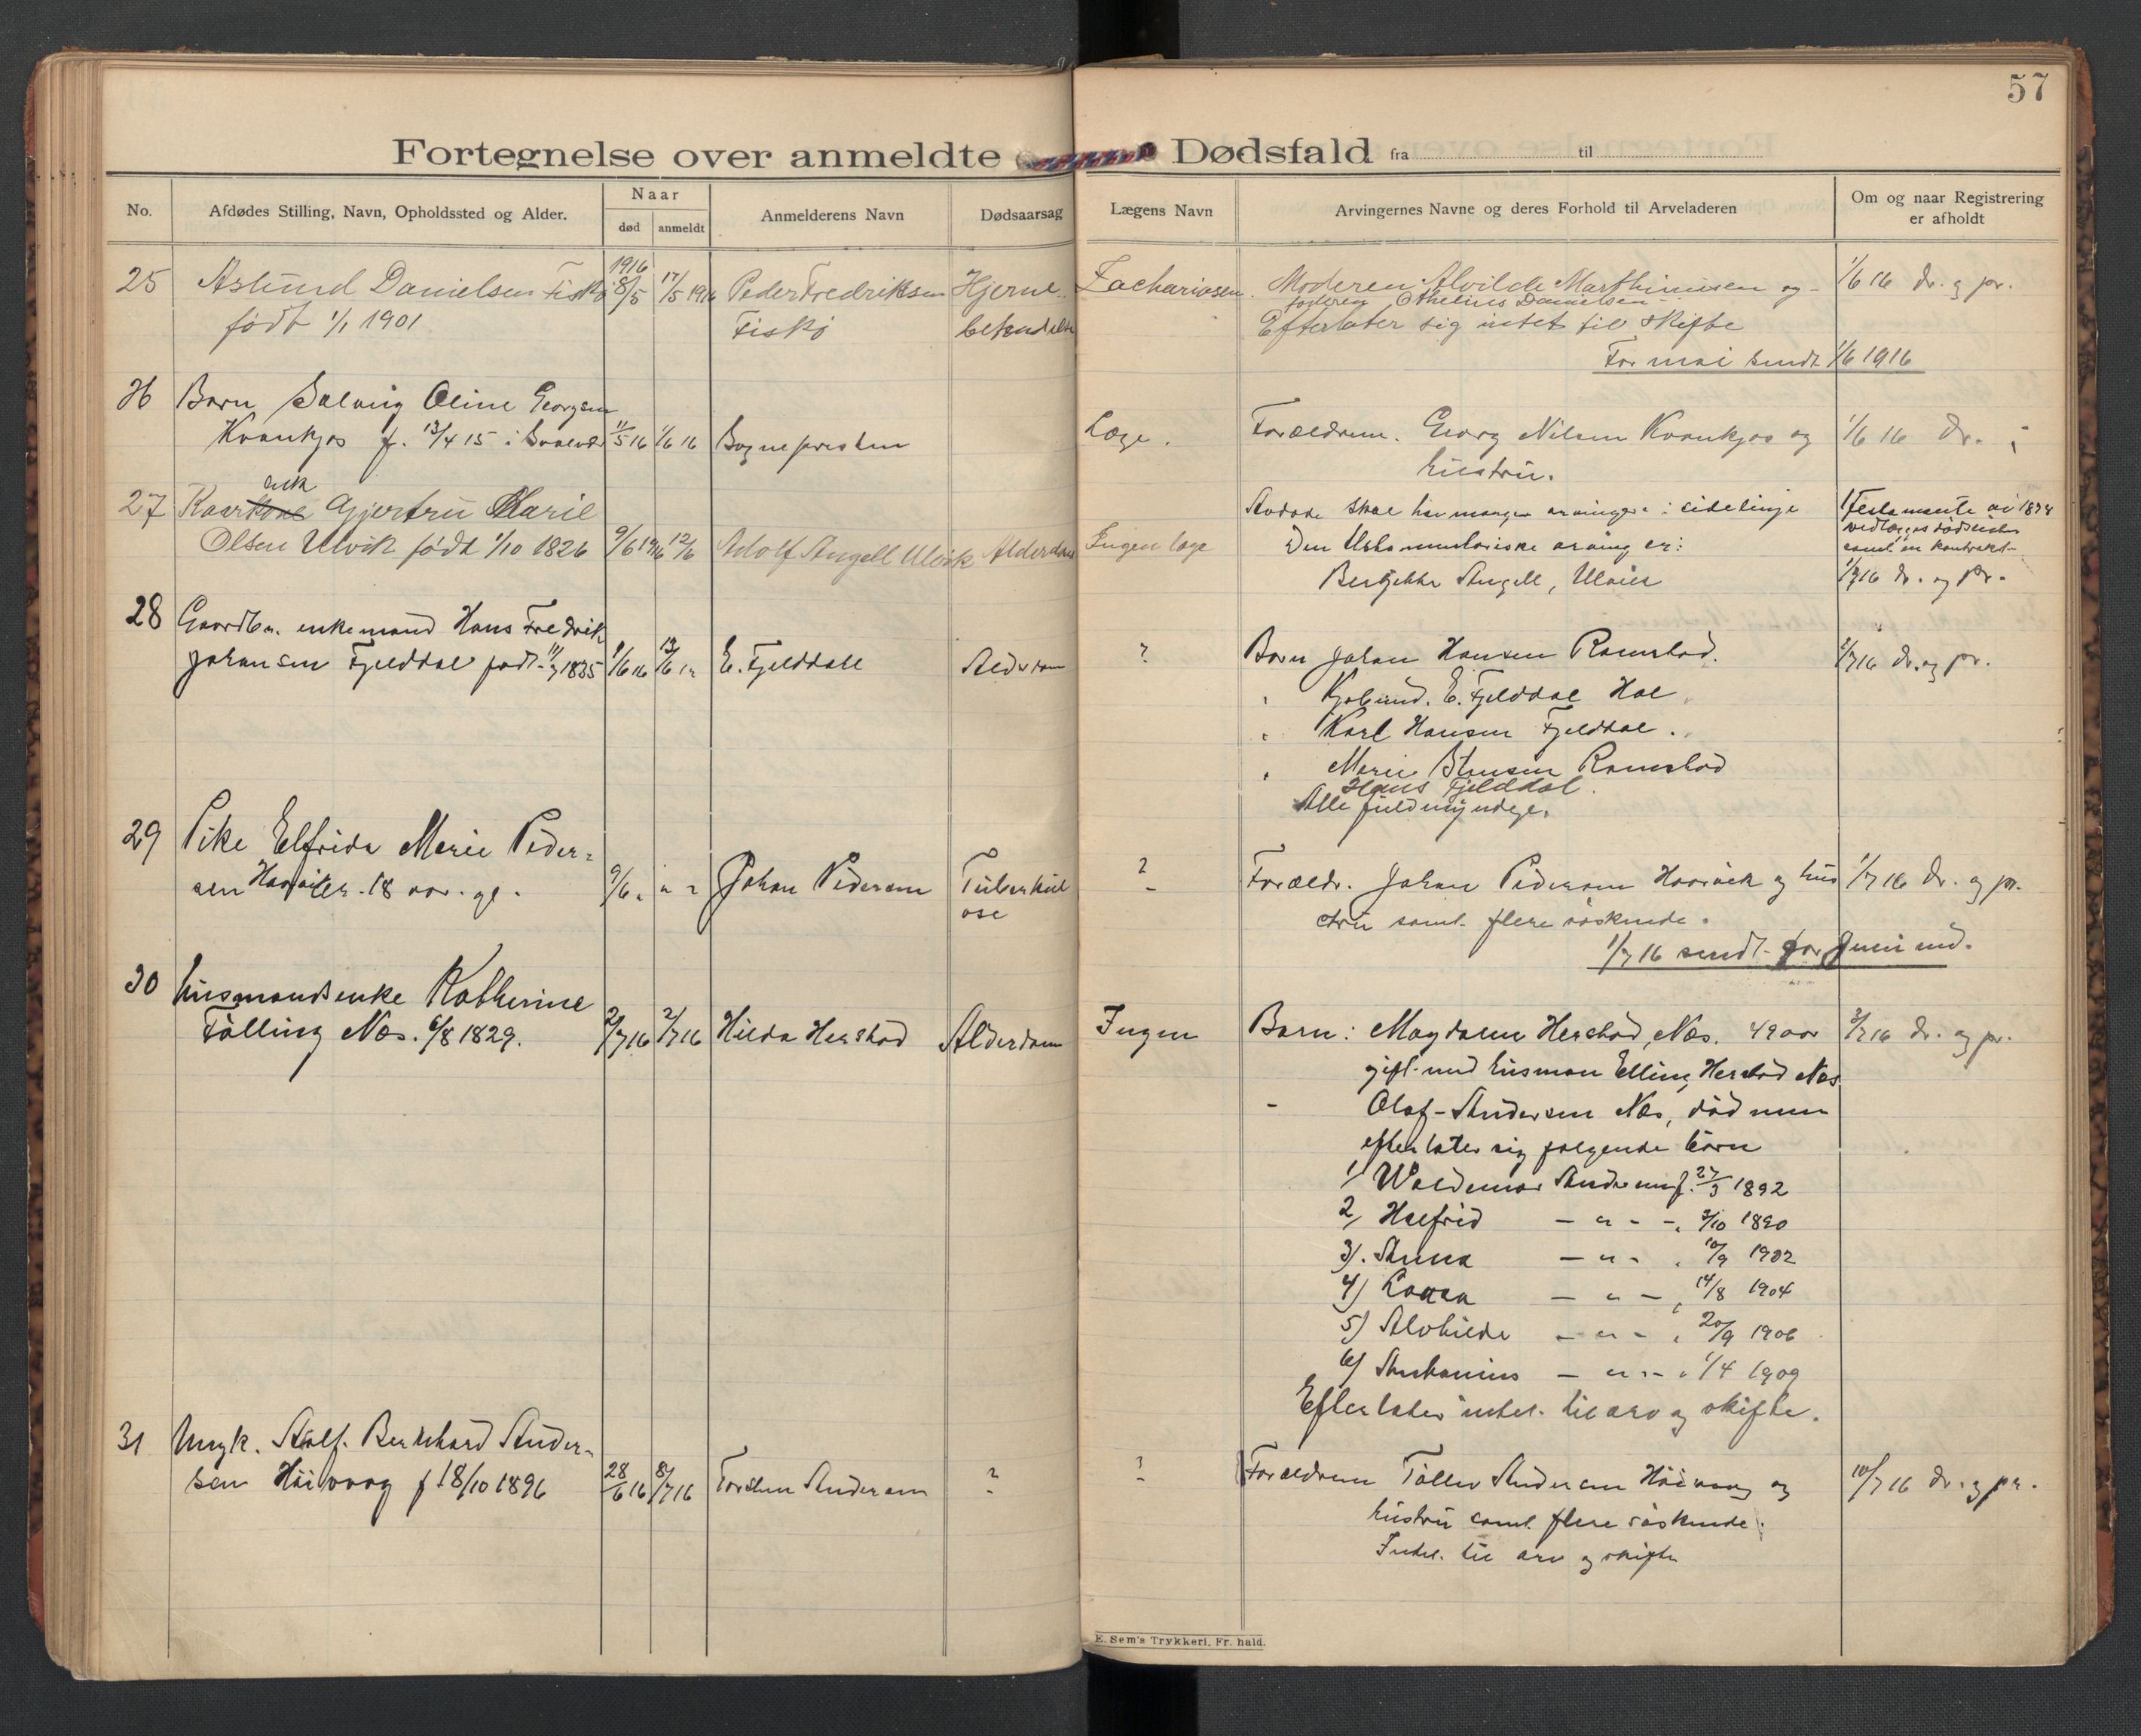 57
Fortegnelse over anmeldte Dødsfald fra til
No. Afdødes Stilling, Navn, Opholdssted og Alder. Naar død anmeldt Anmelderens Navn Dødsaarsag Lægens Navn Arvingernes Navne og deres Forhold til Arveladeren Om og naar Registrering er afholdt
25 Aslaund Danielsen Fiskø 1916 8/5 17/5 1916 Peder Fredriksen Hjerne Zachariasen Moderen Alvilde Marthinusen og 1/6 16 dr. og pr.
faderen Othelius Danielsen
født 1/1 1901 Fiskø betendelse Efterlater sig intet til skifte
For mai sendt 1/6 1916
26 Barn Solveig Oline Georgsen
Kvankjos f. 13/4 15 i 11/5 16 1/6 16 Sognepresten Læge. Forældrene. Georg Nilsen Kvankjos og 1/6 16 dr.
hustru.
27 Kaarenke Gjertru Marie Avdøde skal ha mange arvinger i sidelinje Testamente av 1874
vedlægges dødslisten
Olsen Ulvik født 1/10 1826 9/6 1916 12/6 Adolf Angell Ulvik Alderdom Ingen læge Den testamentariske arving er: samt en kontrakt
Angell, Ulvik 1/7 16 dr. og pr.
28 Gaardbr. enkemand Hans Fredrik
Johansen Fjelddal født 11/7 1835 1/6 16 13/6 E. Fjelddal Alderdom ? Barn Johan Hansen Ramstad. 2/7 16 dr. og pr.
E. Fjelddal Hol
Karl Hansen Fjelddal.
Marie Hansen Ramstad
Hans Fjelddal.
Alle fuldmyndige.
29 Pike Elfrida Marie Peder-
sen Haavik. 18 aar. gl. 9/6 Johan Pedersen Tuberkul ? Forældr. Johan Pedersen Haavik og hus 1/7 16 dr. og pr.
ose stru samt flere søskende.
1/7 16 sendt for Juni md.
30 husmandsenke Katherine
Tølling Næs. 6/8 1829. 2/7 16 2/7 16 Hilda Herstad Alderdom Ingen Barn: Magdalena Herstad, Næs. 49 aar 3/7 16 dr. og pr.
gift med husman Elling Herstad Næs
Olaf Andersen Næs, død men
efterlater sig følgende børn
1/ Waldemar Andersen f. 27/3 1892
2/ Halfrid - " - 3/10 1890
3). Anna - " - 10/9 1902
4) Laura - " - 14/8 1904
5) Alvhilde - " - 20/9 1906
6/ - " - 1/4 1909
Efterlater intet til arv og skifte.
31 Ungk. Adolf Bernhard Ander-
sen Høivaag f 18/10 1896 28/6 16 8/7 16 Torsten Andersen ? ? Forældrene Tollev Andersen Høivaag og 10/7 16 dr. og pr.
hustru samt flere søskende.
Intet til arv og skifte
E. Sem's Trykkeri, Fr. hald.